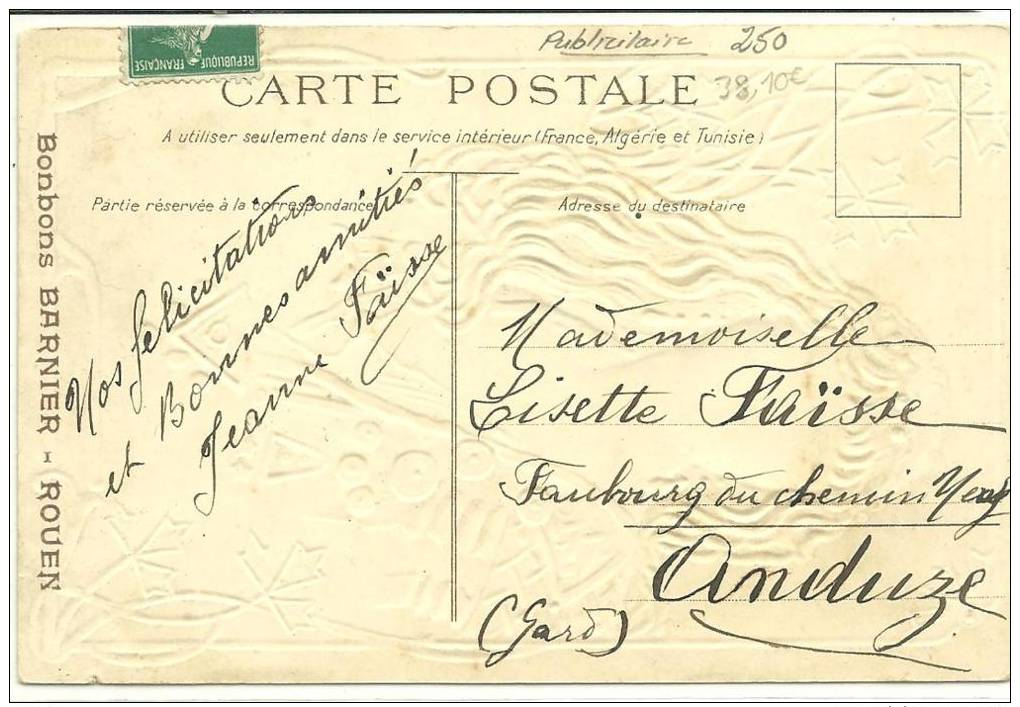 REPUBLIQUE FRANÇAISE
Publicitaire 250
38,10€
CARTE POSTALE
A utiliser seulement dans le service intérieur (France, Algérie et Tunisie)
Partie réservée à la correspondance
Adresse du destinataire
Bonbons BARNIER - ROUEN
Nos félicitations
et Bonnes amitiés!
Jeanne Faïsse
Mademoiselle
Lisette Faïsse
Faubourg du chemin
Anduze
(Gard)